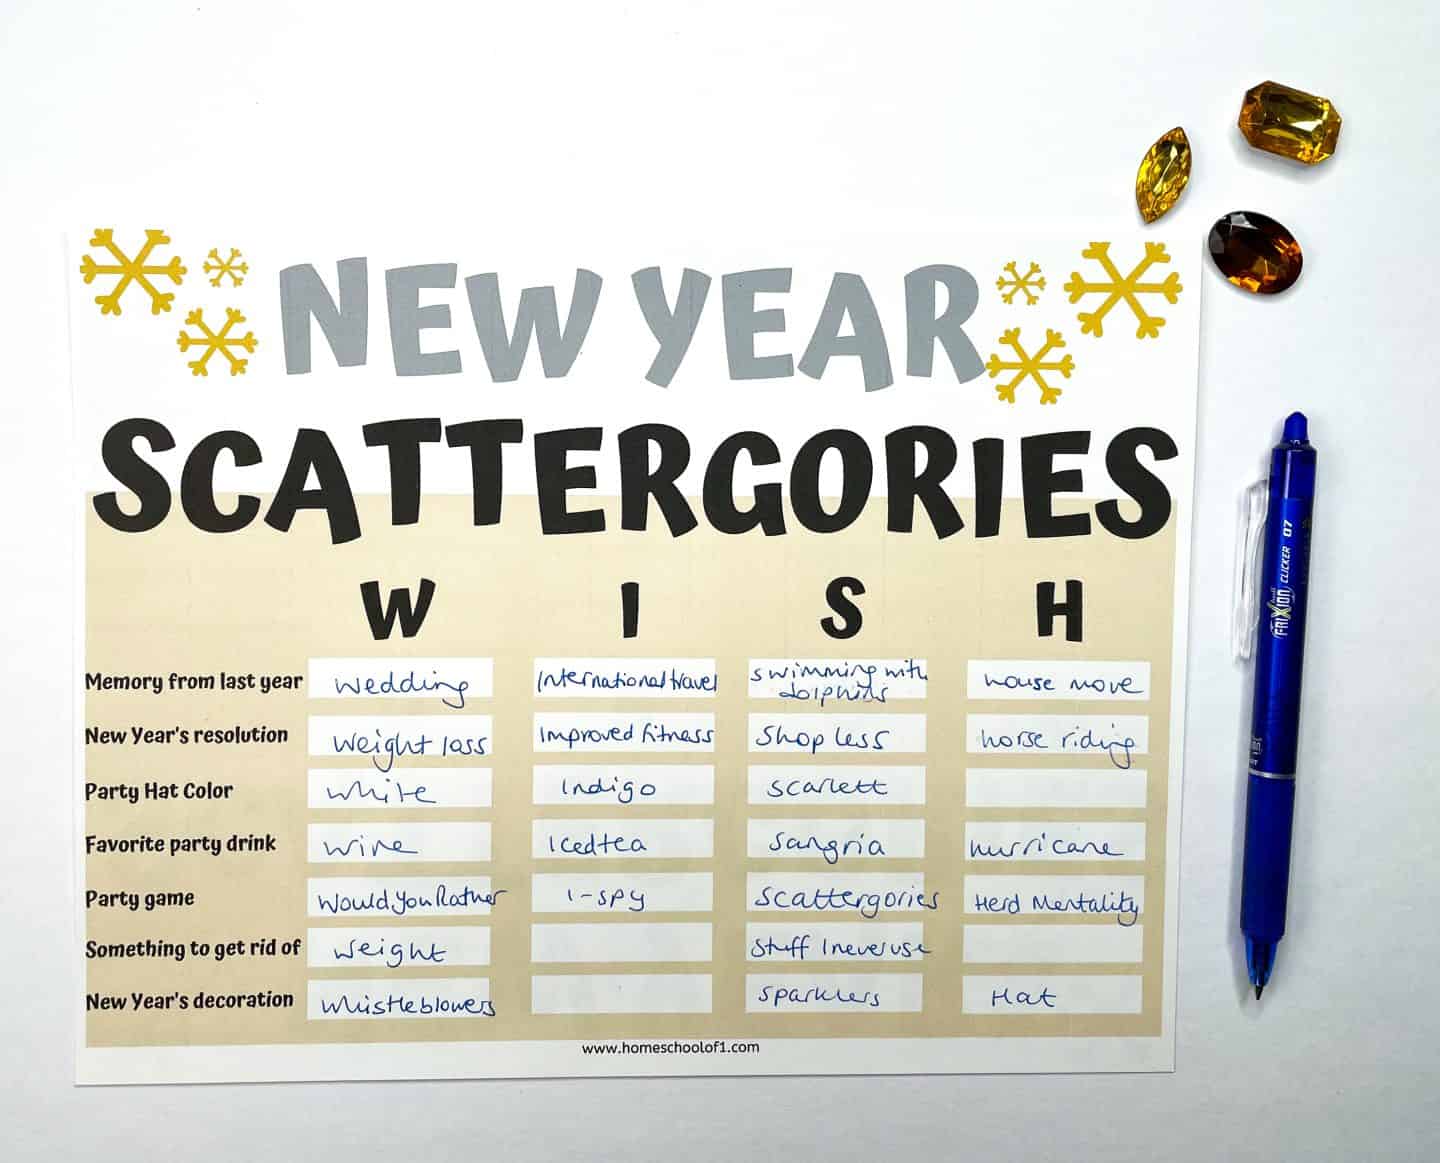 NEW YEAR
SCATTERGORIES
W I S H
Memory from last year wedding International travel swimming with dolphins house move
New Year's resolution weight loss Improved fitness shop less horse riding
Party Hat Color white Indigo scarlett
Favorite party drink wine Iced tea sangria hurricane
Party game Would You Rather I-spy scattergories Herd Mentality
Something to get rid of weight stuff I never use
New Year's decoration whistleblowers sparklers Hat
www.homeschoolof1.com
FRIXION CLICKER 07